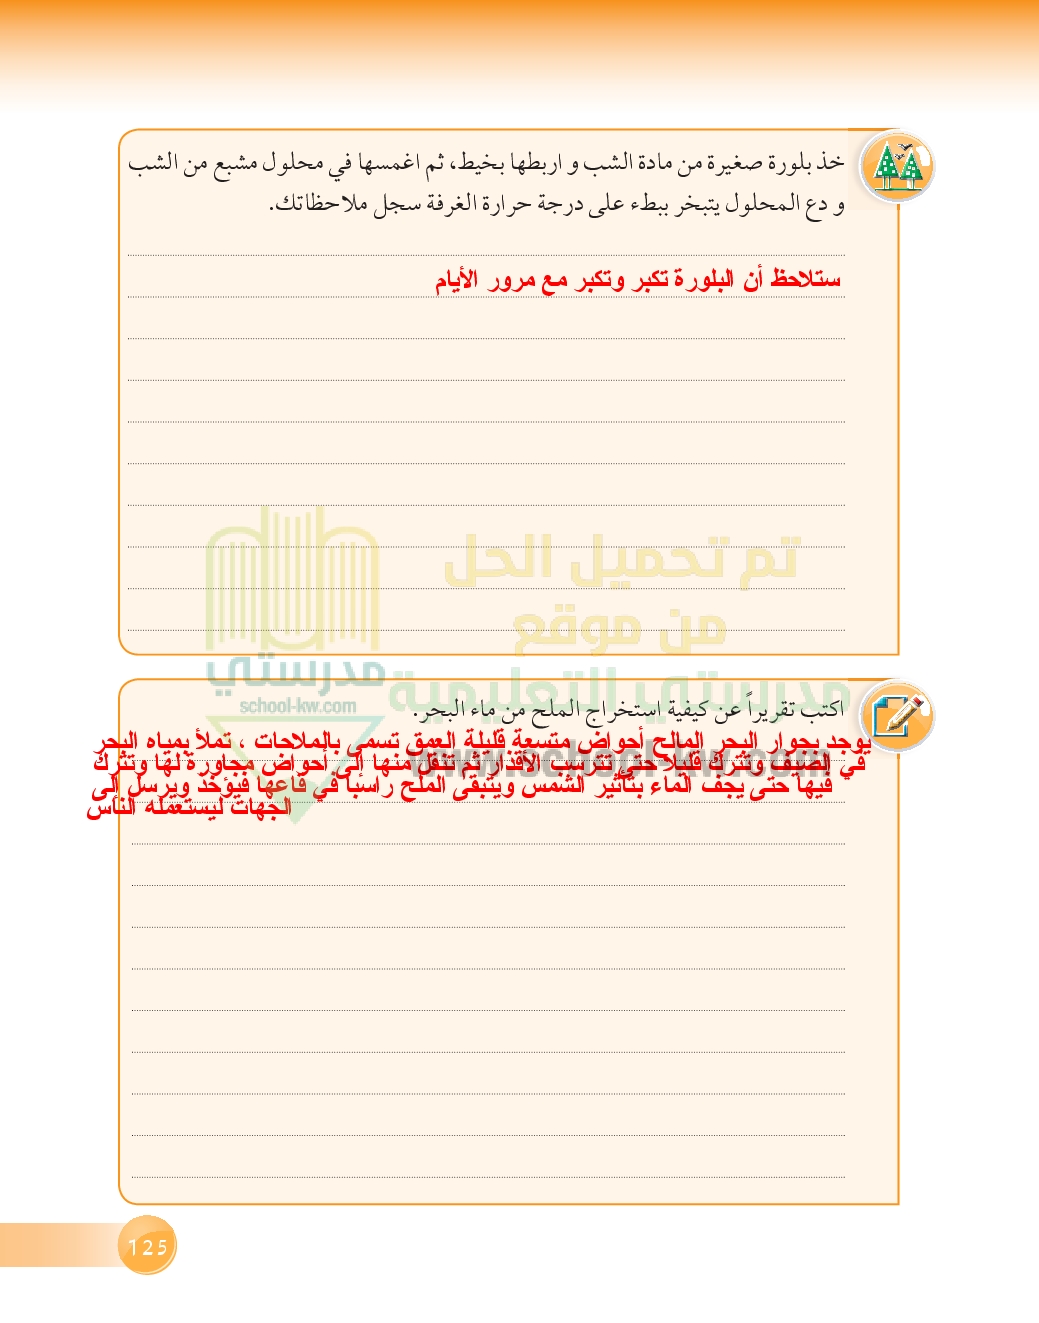 خذ بلورة صغيرة من مادة الشب و اربطها بخيط، ثم اغمسها في محلول مشبع من الشب
و دع المحلول يتبخر ببطء على درجة حرارة الغرفة سجل ملاحظاتك.
ستلاحظ أن البلورة تكبر وتكبر مع مرور الأيام
تم تحميل الحل
من موقع
مدرستي التعليمية
www.school-kw.com
مدرستي
school-kw.com
اكتب تقريراً عن كيفية استخراج الملح من ماء البحر.
يوجد بجوار البحر المالح أحواض متسعة قليلة العمق تسمى بالملاحات ، تملأ بمياه البحر
في الصيف وتترك قليلا حتى تترسب الأقذار ثم تنقل منها إلى أحواض مجاورة لها وتترك
فيها حتى يجف الماء بتأثير الشمس ويتبقى الملح راسبا في قاعها فيؤخذ ويرسل إلى
الجهات ليستعمله الناس
125